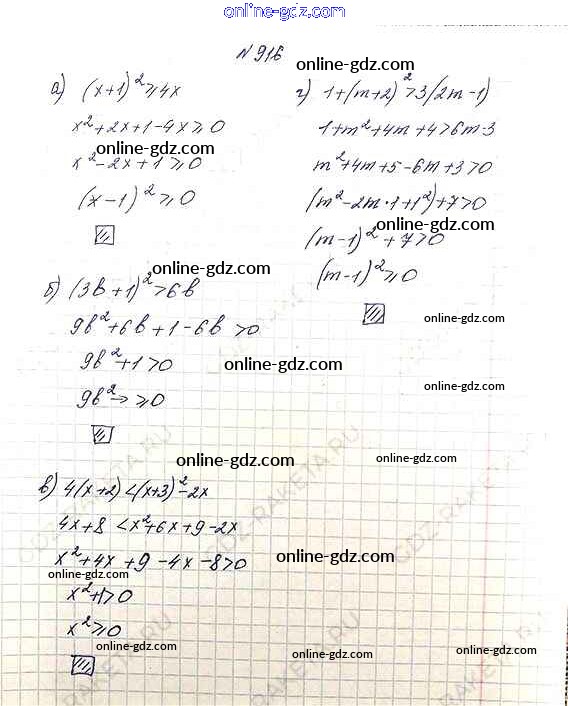 online-gdz.com
N916
online-gdz.com
а) (x+1)² ≥ 4x
x²+2x+1-4x ≥ 0
online-gdz.com
x²-2x+1 ≥ 0
(x-1)² ≥ 0
г) 1+(m+2)² > 3(2m-1)
1+m²+4m+4 > 6m-3
online-gdz.com
m²+4m+5-6m+3 > 0
(m²-2m·1+1²)+7 > 0
online-gdz.com
(m-1)²+7 > 0
(m-1)² ≥ 0
online-gdz.com
б) (3b+1)² > 6b
9b²+6b+1-6b > 0
online-gdz.com
9b²+1 > 0
online-gdz.com
9b² → ≥ 0
online-gdz.com
online-gdz.com
online-gdz.com
в) 4(x+2) < (x+3)²-2x
4x+8 < x²+6x+9-2x
x²+4x+9-4x-8 > 0
online-gdz.com
online-gdz.com
x²+1 > 0
x² ≥ 0
online-gdz.com
online-gdz.com
online-gdz.com
GDZ-RAKETA.RU
GDZ-RAKETA.RU